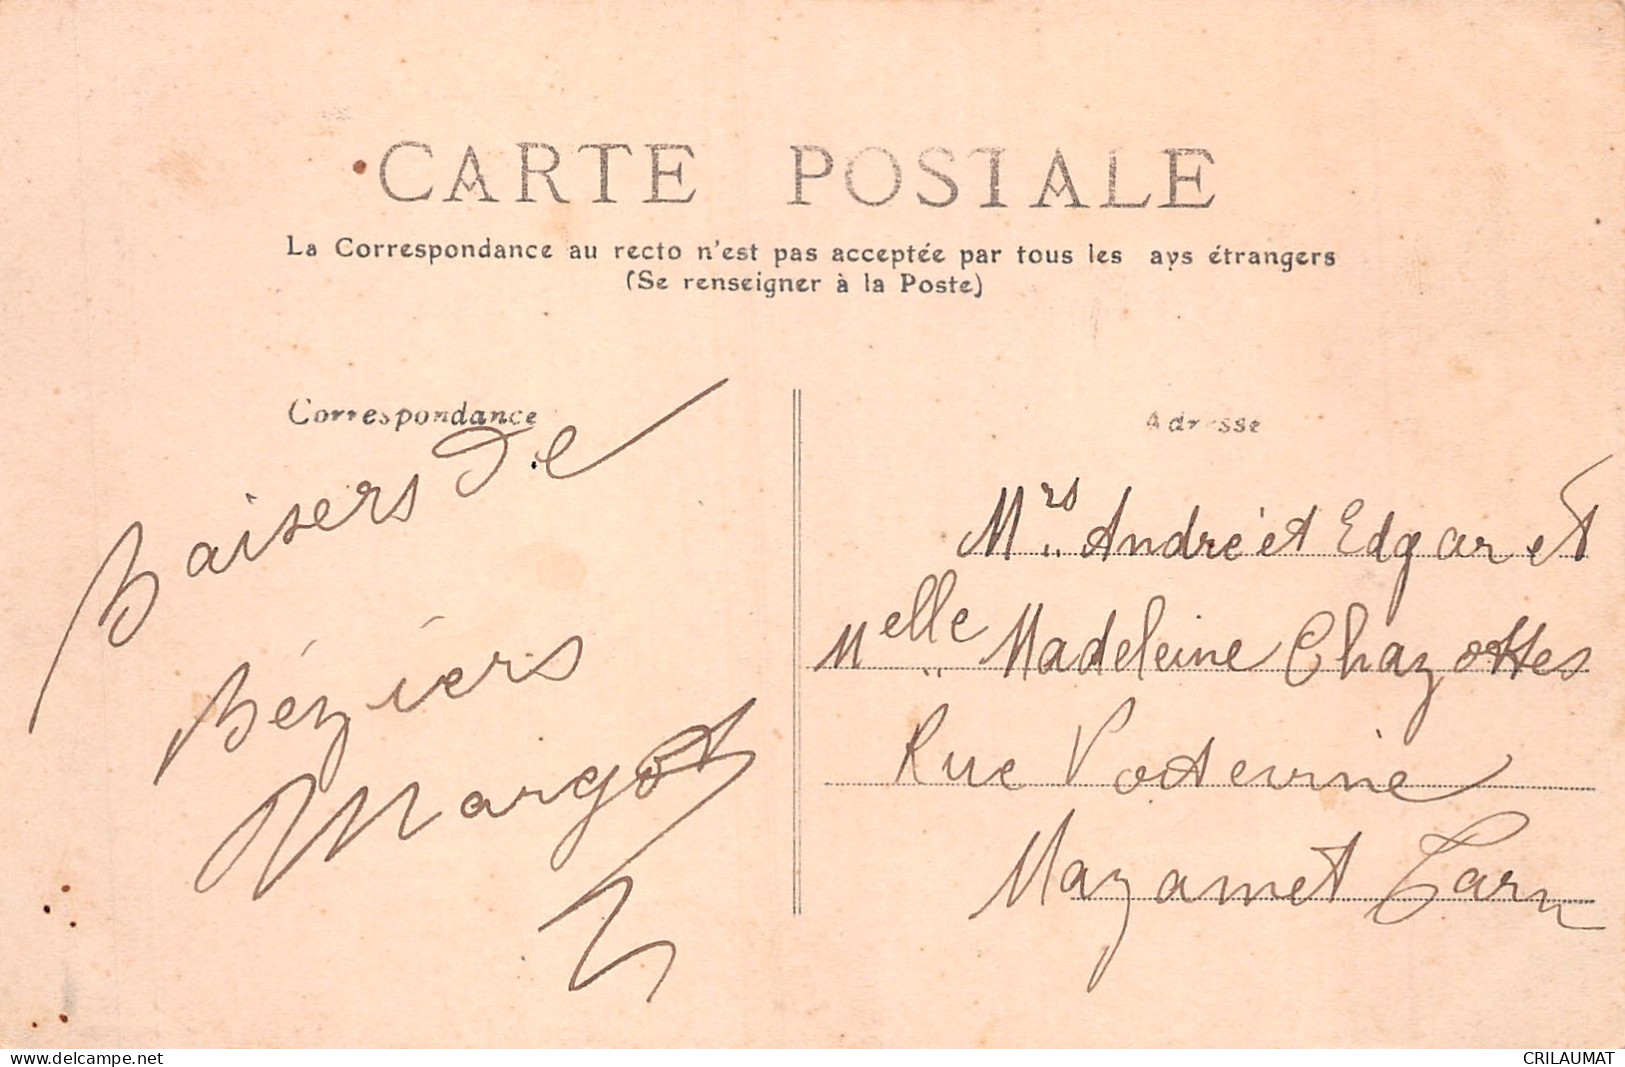 CARTE POSTALE
La Correspondance au recto n'est pas acceptée par tous les ays étrangers
(Se renseigner à la Poste)
Correspondance
Baisers de
Béziers
Margot
Adresse
Mrs André et Edgar et
Melle Madeleine Chazottes
Rue
Mazamet Tarn
www.delcampe.net
CRILAUMAT